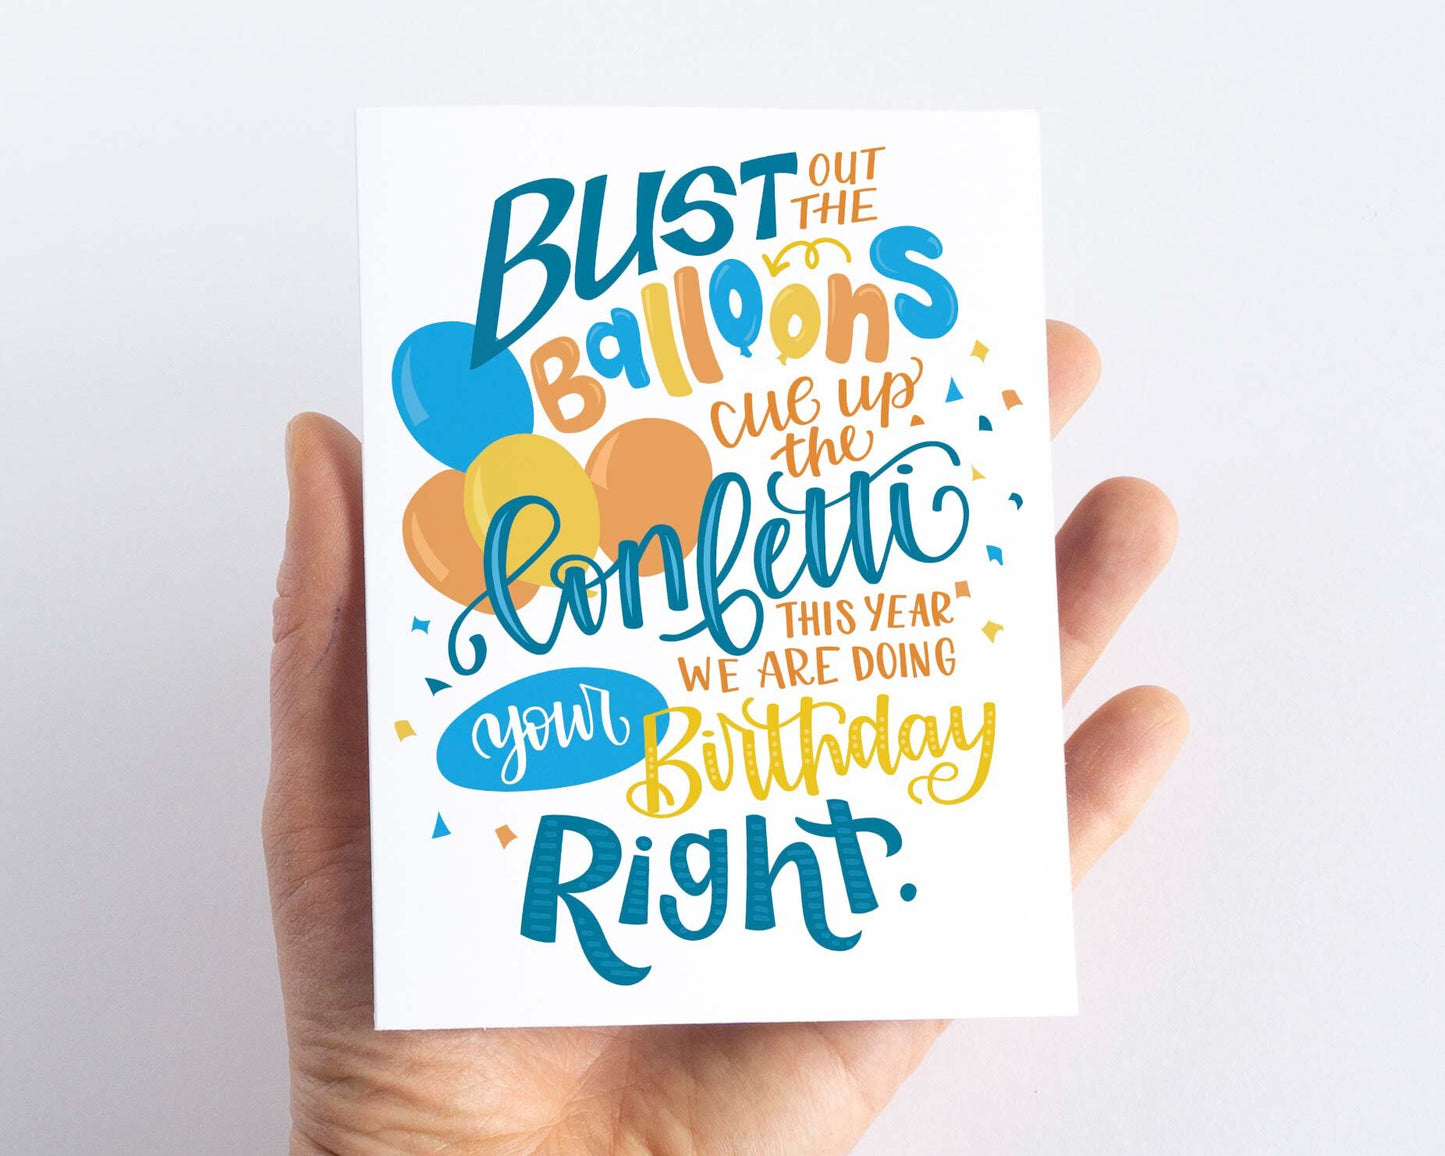 BUST OUT
THE
Balloons
cue up
the
Confetti
THIS YEAR
WE ARE DOING
your Birthday
Right.